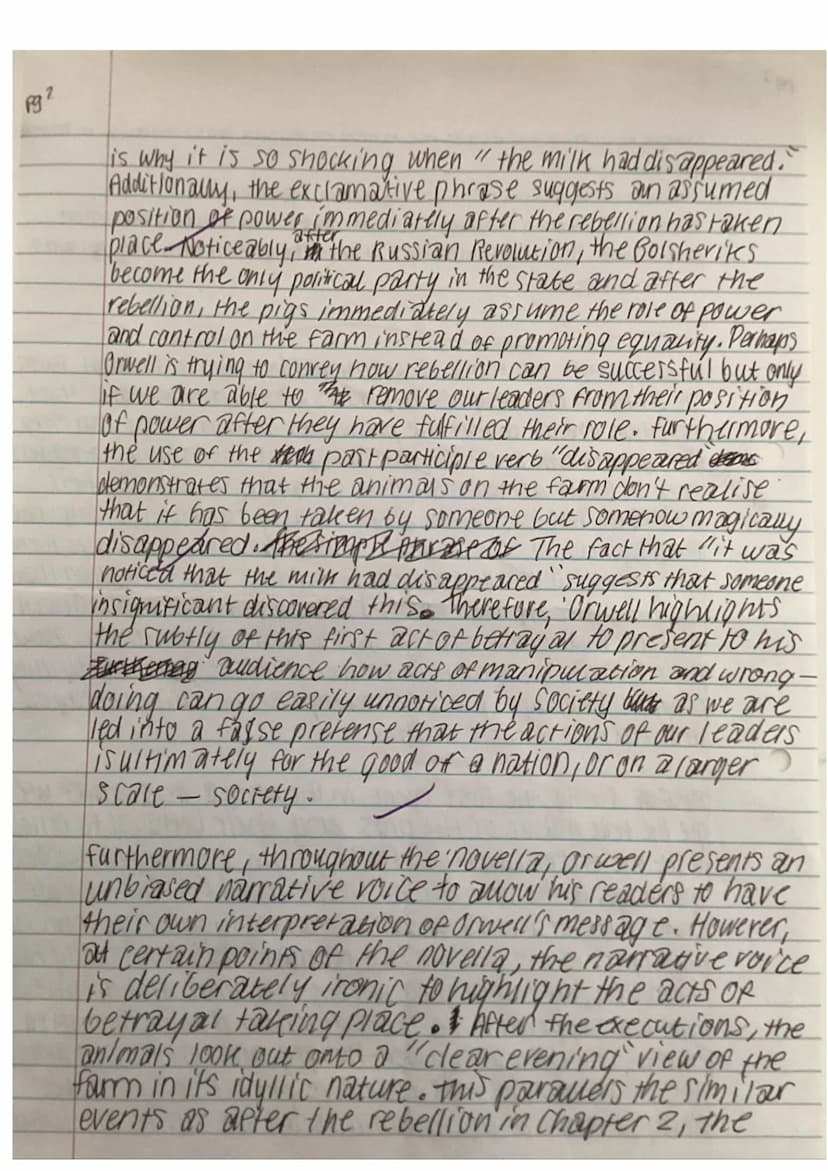 pg 2
is why it is so shocking when "the milk had disappeared."
Additionally, the exclamative phrase suggests an assumed
position of power immediately after the rebellion has taken
place. Noticeably, after the Russian Revolution, the Bolsheviks
become the only political party in the state and after the
rebellion, the pigs immediately assume the role of power
and control on the farm instead of promoting equality. Perhaps
Orwell is trying to convey how rebellion can be successful but only
if we are able to remove our leaders from their position
of power after they have fulfilled their role. Furthermore,
the use of the past participle verb "disappeared"
demonstrates that the animals on the farm don't realise
that it has been taken by someone but somehow magically
disappeared. The fact that "it was
noticed that the milk had disappeared" suggests that someone
insignificant discovered this. Therefore, Orwell highlights
the subtly of this first act of betrayal to present to his
audience how acts of manipulation and wrong-
doing can go easily unnoticed by society as we are
led into a false pretense that the actions of our leaders
is ultimately for the good of a nation, or on a larger
scale — society.
Furthermore, throughout the novella, Orwell presents an
unbiased narrative voice to allow his readers to have
their own interpretation of Orwell's message. However,
at certain points of the novella, the narrative voice
is deliberately ironic to highlight the acts of
betrayal taking place. After the executions, the
animals look out onto a "clear evening" view of the
farm in its idyllic nature. This parallels the similar
events as after the rebellion in Chapter 2, the